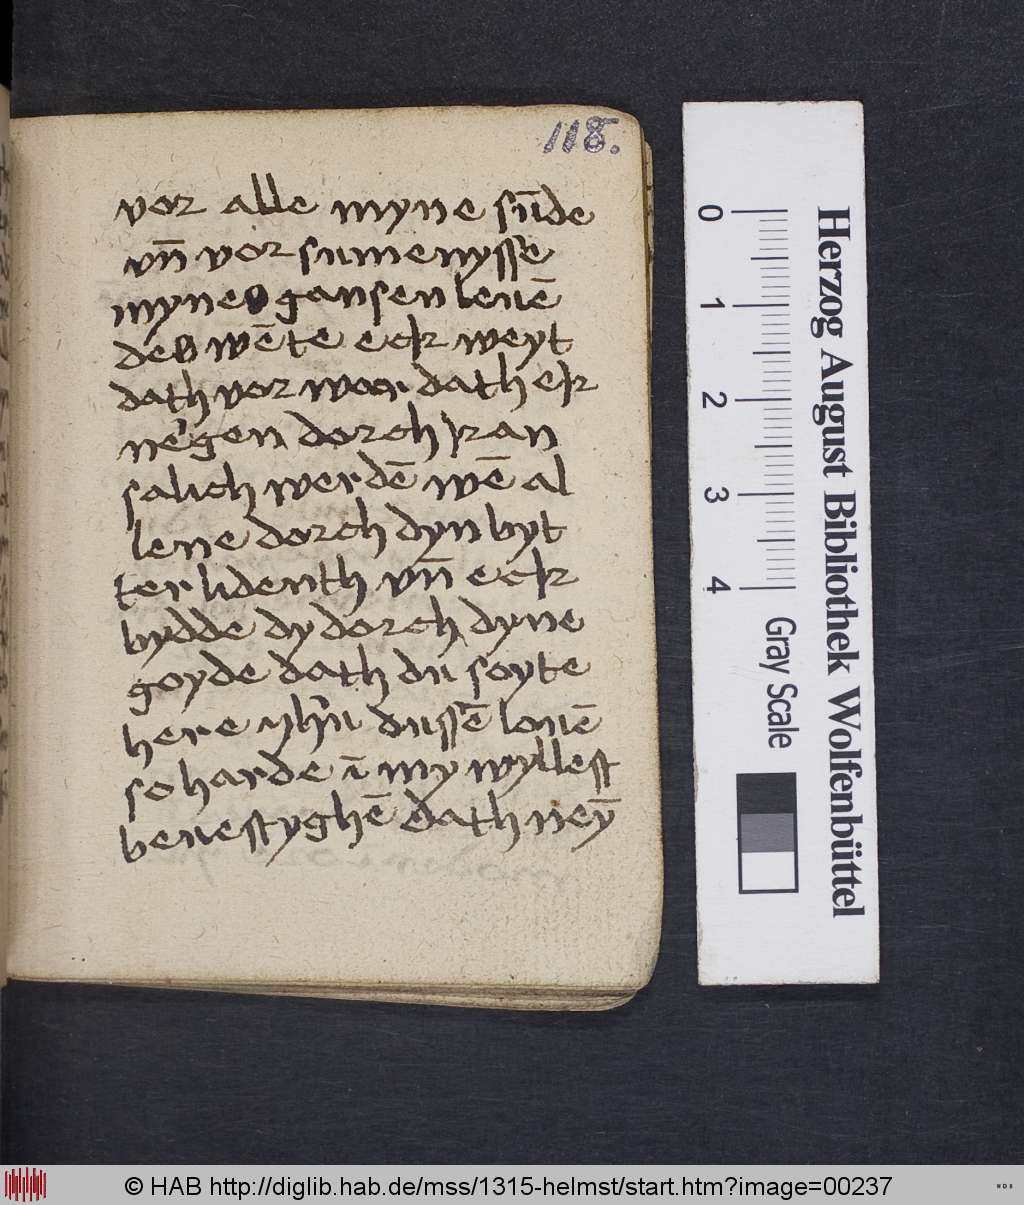 118.
vor alle myne sūde
vn̄ vor sumenysse
mynes gansen leuē
des wēte eck weyt
dath vor war dath ek
nergen dorch kan
salich werdē wē al
lene dorch dyn byt
ter lidenth vn̄ eck
bydde dy dorch dyne
goyde dath du soyte
here yhu dussē louē
so harde ī my wyllest
beuestyghē dath neȳ
Herzog August Bibliothek Wolfenbüttel
0 1 2 3 4
Gray Scale
© HAB http://diglib.hab.de/mss/1315-helmst/start.htm?image=00237